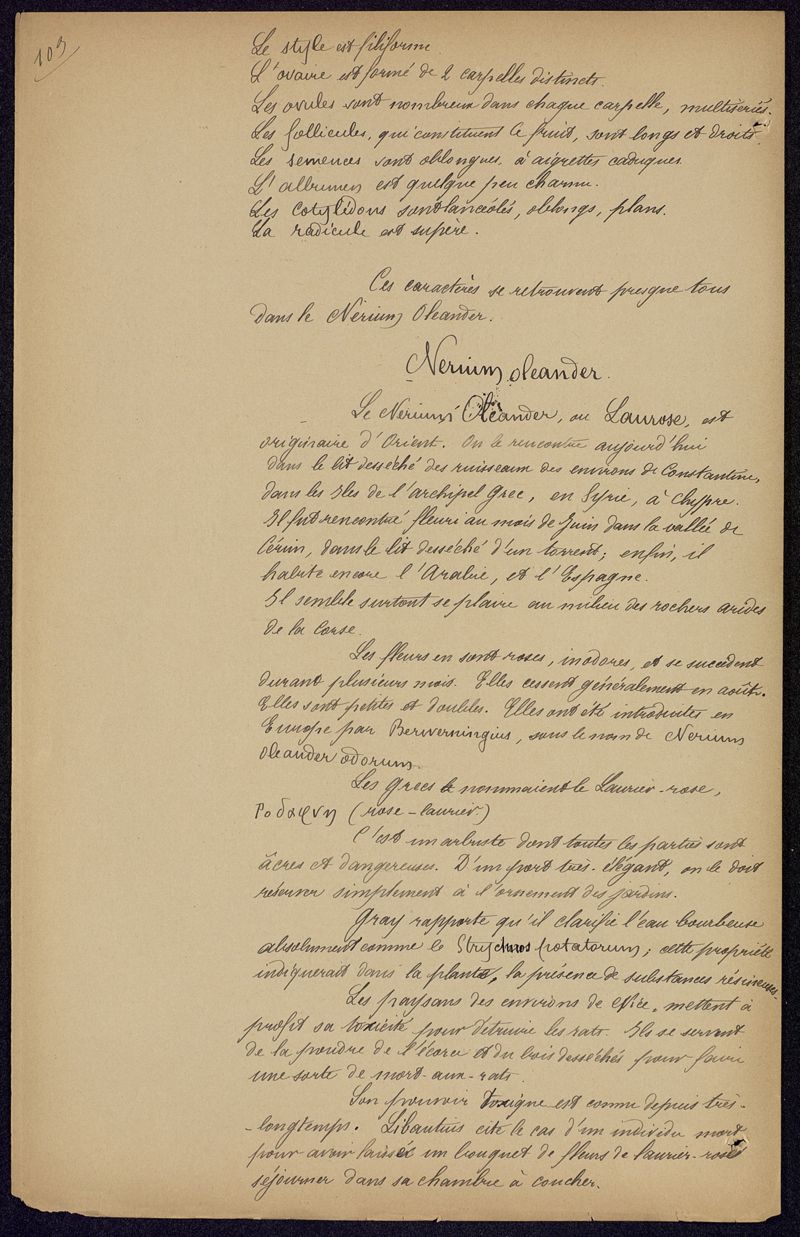 103
Le style est filiforme.
L'ovaire est formé de 2 carpelles distincts.
Les ovules sont nombreux dans chaque carpelle, multiseriés.
Les follicules, qui constituent le fruit, sont longs et droits.
Les semences sont oblongues, à aigrettes caduques.
L'albumen est quelque peu charnu.
Les cotylédons sont lancéolés, oblongs, plans.
La radicule est supère.
Ces caractères se retrouvent presque tous
dans le Nérium Oleander.
Nerium oleander.
Le Nerium Oléander, ou Laurose, est
originaire d'Orient. On le rencontre aujourd'hui
dans le lit desséché des ruisseaux des environs de Constantine,
dans les Iles de l'archipel Grec, en Syrie, à Chypre.
Il fut rencontré fleuri au mois de Juin dans la vallée de
dans le lit desséché d'un torrent; enfin, il
habite encore l'Arabie, et l'Espagne.
Il semble surtout se plaire au milieu des rochers arides
de la Corse.
Les fleurs en sont roses, inodores, et se succèdent
durant plusieurs mois. Elles cessent généralement en août.
Elles sont petites et doubles. Elles ont été introduites en
Europe par Berverningius, sous le nom de Nerium
oleander odorum.
Les Grecs le nommaient le Laurier-rose,
Ροδαφνη (rose-laurier)
C'est un arbuste dont toutes les parties sont
âcres et dangereuses. D'un port très-élégant, on le doit
réserver simplement à l'ornement des jardins.
Gray rapporte qu'il clarifie l'eau bourbeuse
absolument comme le Strychnos (potatorum); cette propriété
indiquerait dans la plante, la présence de substances résineuses.
Les paysans des environs de Nice, mettent à
profit sa toxicité pour détruire les rats. Ils se servent
de la poudre de l'écorce et du bois desséchés pour faire
une sorte de mort-aux-rats.
Son pouvoir toxique est connu depuis très-
-longtemps. Libautius cite le cas d'un individu mort
pour avoir laissé un bouquet de fleurs de laurier-rose
séjourner dans sa chambre à coucher.